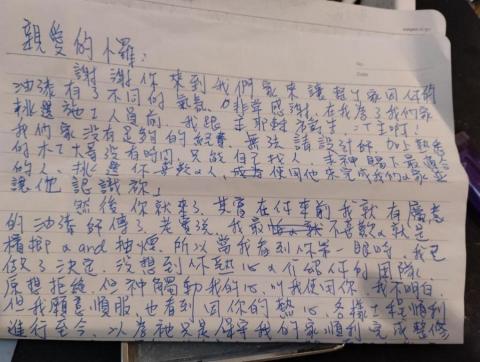 親愛的卜羅:
謝謝你來到我們家來讓整個家因你的
油漆有了不同的氣氛,非常感謝,在我為了我們家
挑選施工人員前,我跟主耶穌禱告:「主啊!
我們家沒有足夠的經費,無法請設計師,加上熟悉
的木工大哥沒有時間,只能自己找人,求神賜下最適合
的人,挑選你喜歡的人,成為使用他來完成我們的家並
讓他認識祢」
然後你就來了,其實在你來前,我就有屬意
的油漆師傅了,老實說,我最不喜歡的就是
檳榔 and 抽煙,所以當我看到你第一眼時,我已
做了決定,沒想到你熱心的介紹你的團隊,
原想拒絕,但神觸動我的心,叫我使用你,我不明白,
但我願意順服,也看到因你的熱心,各樣工程順利
進行至今,以為祂只是保守我的家順利完成整修